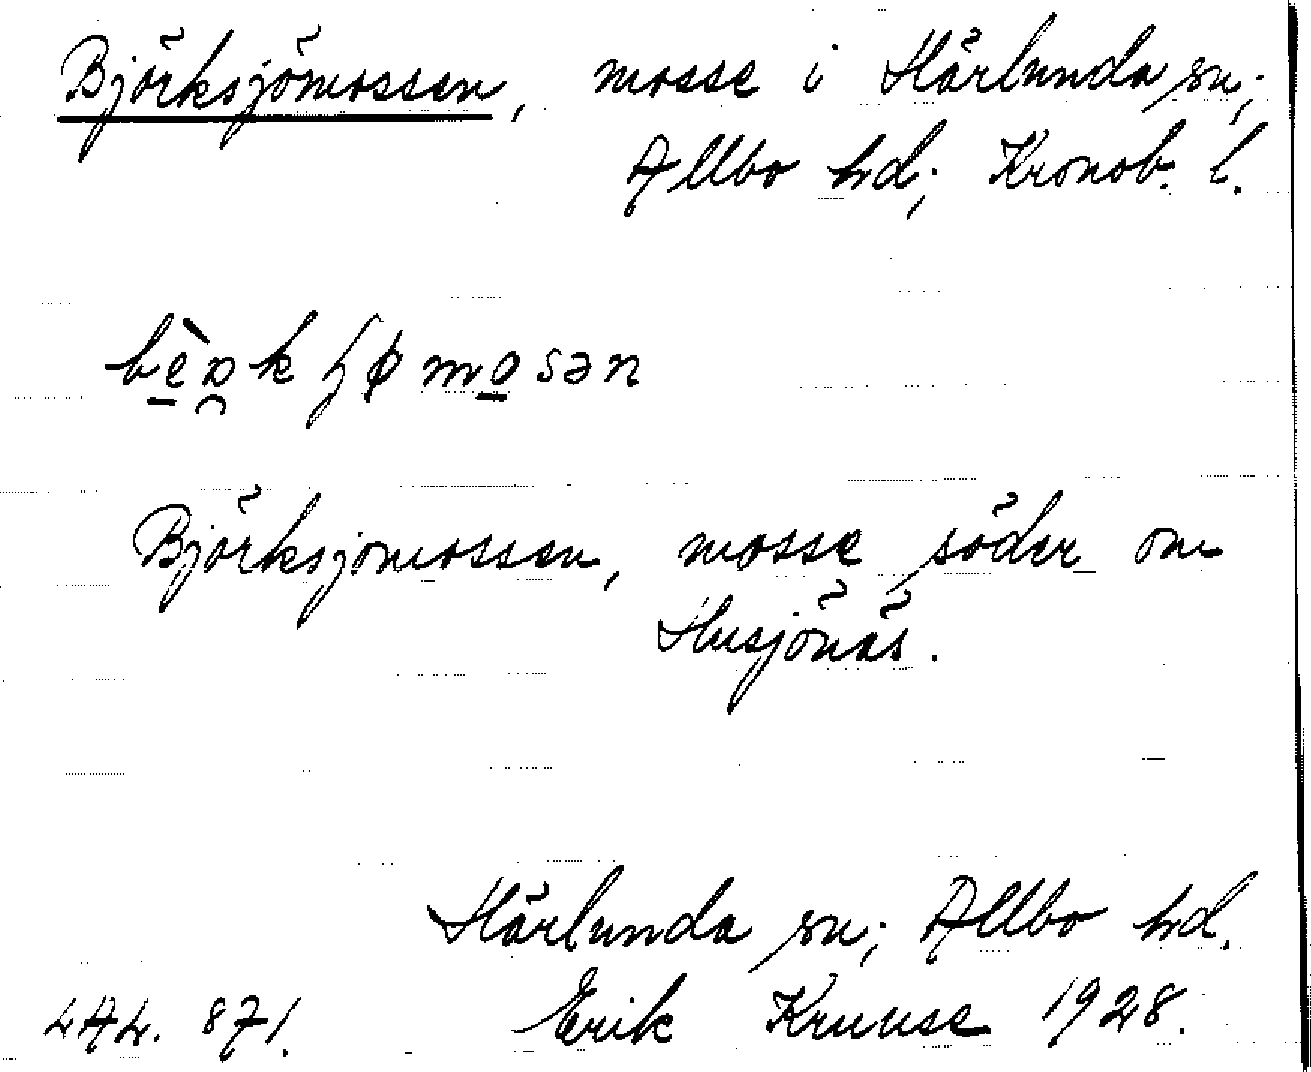 Björksjömossen, mosse i Härlunda sn;
Allbo hd; Kronob. l.
Björksjomossen, mosse söder om
Husjönäs.
Härlunda sn; Allbo hd.
Erik Kruuse 1928.
LAL. 871.